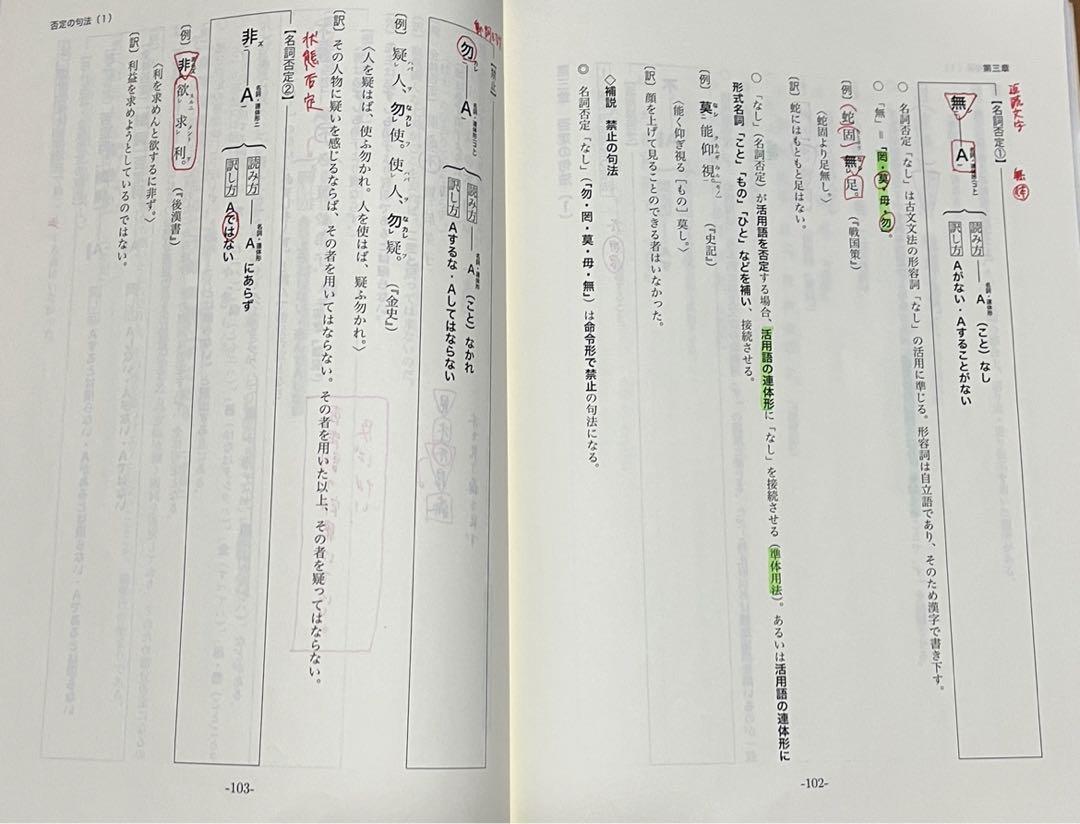 第三章
【名詞否定①】
無二 A一 名詞・連体形コト
読み方 ── A 名詞・連体形 (こと) なし
訳し方 Aがない・Aすることがない
○ 名詞否定「なし」は古文文法の形容詞「なし」の活用に準じる。形容詞は自立語であり、そのため漢字で書き下す。
○ 「無」=「罔・莫・毋・勿」。
〔例〕 蛇固無レ足。(『戦国策』)
〈蛇固より足無し。〉
〔訳〕 蛇にはもともと足はない。
○ 「なし」(名詞否定)が活用語を否定する場合、活用語の連体形に「なし」を接続させる(準体用法)。あるいは活用語の連体形に
形式名詞「こと」「もの」「ひと」などを補い、接続させる。
〔例〕 莫二能仰視一。(『史記』)
〈能く仰ぎ視る[もの]莫し。〉
〔訳〕 顔を上げて見ることのできる者はいなかった。
◇補説 禁止の句法
◎ 名詞否定「なし」(「勿・罔・莫・毋・無」)は命令形で禁止の句法になる。
-102-
否定の句法(1)
勿二カレ A一 名詞・連体形コト
読み方 ── A 名詞・連体形 (こと) なかれ
訳し方 Aするな・Aしてはならない
〔例〕 疑レハバ人、勿レカレ使フ。使レハバ人、勿レカレ疑フ。(『金史』)
〈人を疑はば、使ふ勿かれ。人を使はば、疑ふ勿かれ。〉
〔訳〕 その人物に疑いを感じるならば、その者を用いてはならない。その者を用いた以上、その者を疑ってはならない。
状態否定
【名詞否定②】
非二ズ A一 名詞・連体形ニ
読み方 ── A 名詞・連体形 にあらず
訳し方 Aではない
〔例〕 非レ欲レスルニ求レメント利ヲ。(『後漢書』)
〈利を求めんと欲するに非ず。〉
〔訳〕 利益を求めようとしているのではない。
-103-